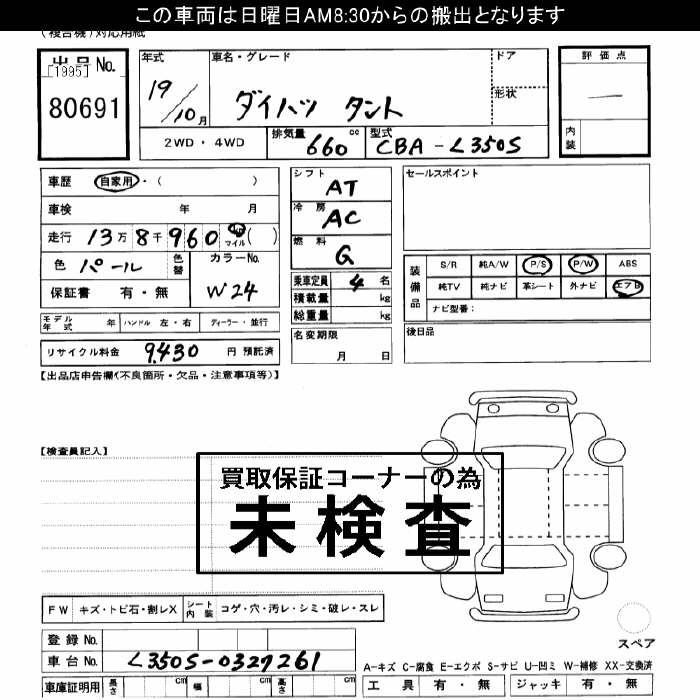 この車両は日曜日AM8:30からの搬出となります
(複合機)対応用紙
出品No.
[1995]
80691
年式
19/10月
車名・グレード
ダイハツ タント
ドア
形状
評価点
内装
2WD・4WD
排気量 660 cc
型式 CBA-L350S
車歴 自家用・( )
車検 年 月
走行 13万8千960 km マイル ( )
色 パール
色替
カラーNo.
W24
保証書 有・無
モデル年式 年 ハンドル 左・右 ディーラー・並行
リサイクル料金 9,430 円 預託済
シフト AT
冷房 AC
燃料 G
乗車定員 4 名
積載量 kg
総重量 kg
名変期限
月 日
セールスポイント
装備品
S/R 純A/W P/S P/W ABS
純TV 純ナビ 革シート 外ナビ エアB
ナビ型番:
後日品
【出品店申告欄(不良箇所・欠品・注意事項等)】
【検査員記入】
買取保証コーナーの為
未検査
FW キズ・トビ石・割レX シート内装 コゲ・穴・汚レ・シミ・破レ・スレ
登録No.
車台No. L350S-0327261
車庫証明用 長さ cm 幅 cm 高さ cm
スペア
A-キズ C-腐食 E-エクボ S-サビ U-凹ミ W-補修 XX-交換済
工具 有・無 ジャッキ 有・無